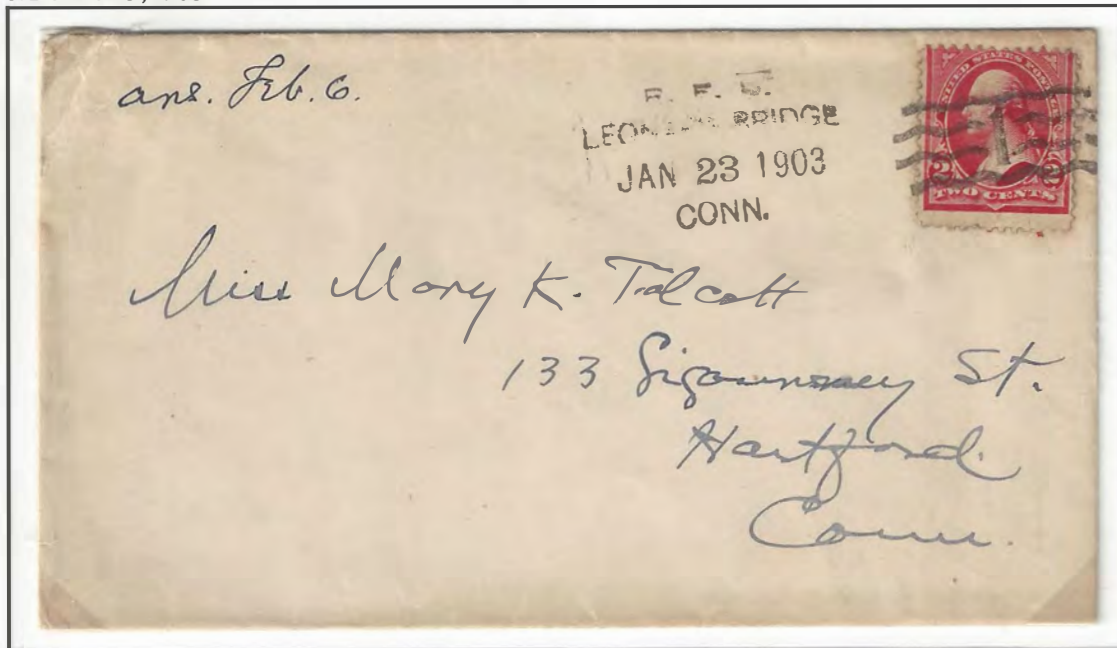 ans. Feb. 6.
R. F. D.
BRIDGE
JAN 23 1903
CONN.
UNITED STATES POSTAGE
1
2 2
TWO CENTS
Miss Mary K. Talcott
133 Sigourney St.
Hartford
Conn.